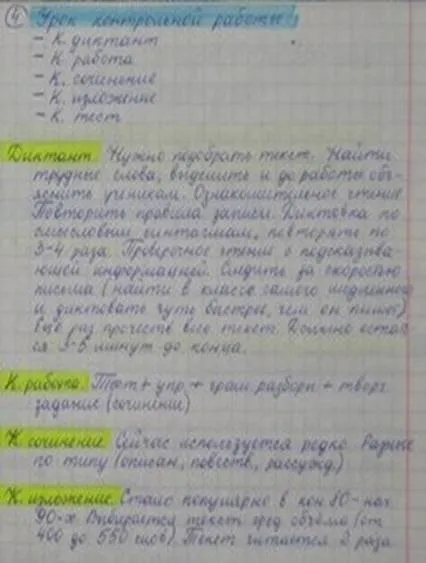 ④ Урок контрольной работы!
- К. диктант
- К. работа
- К. сочинение
- К. изложение
- К. тест
Диктант. Нужно подобрать текст. Найти
трудные слова, выделить и до работы объ-
яснить ученикам. Ознакомительное чтение
Повторить правила записи. Диктовка по
смысловым синтагмам, повторять по
3-4 раза. Проверочное чтение с подсказыва-
ющей информацией. Следить за скоростью
письма (найти в классе самого медленного
и диктовать чуть быстрее, чем он пишет)
Ещё раз прочесть весь текст. Должно остать
ся 3-5 минут до конца.
К. работа. Тест + упр. + грам. разборы + творч.
задание (сочинение)
К. сочинение. Сейчас используется редко. Разные
по типу (описан, повеств, рассужд.)
К. изложение. Стало популярно в кон 80- нач.
90-х. Выбирается текст сред объёма (от
400 до 550 слов). Текст читается 2 раза